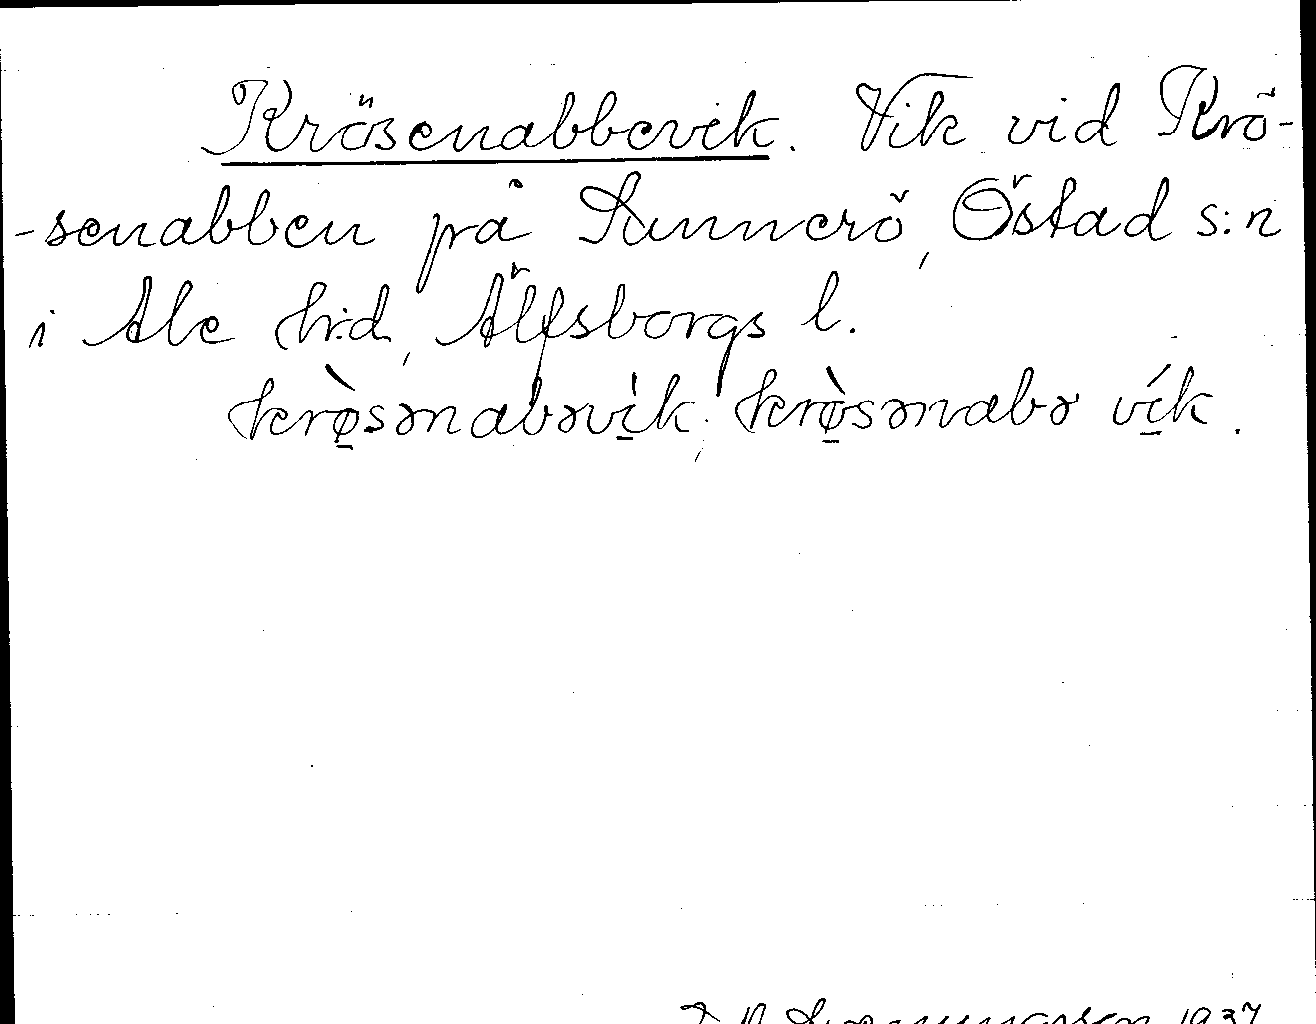 Krösenabbevik. Vik vid Krö-
-senabben på Sunnerö, Östad s:n
i Ale h:d, Älfsborgs l.
krø̠̀sənabəvi̠̍k; krø̠̀sənabə ví̠k.
1937